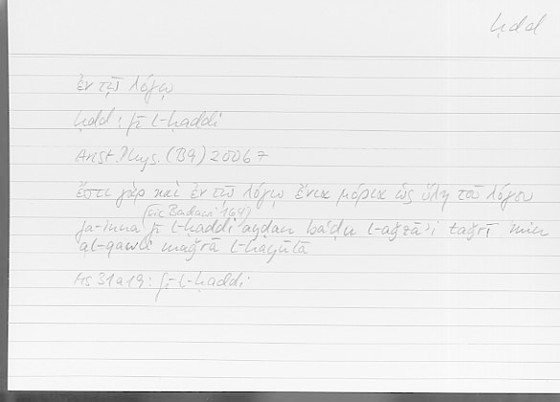 ḥdd
ἐν τῷ λόγῳ
ḥdd : fī l-ḥaddi
Arist. Phys. (B9) 200b7
ἔστι γὰρ καὶ ἐν τῷ λόγῳ ἔνια μόρια ὡς ὕλη τοῦ λόγου
(sic Badawī 164)
fa-inna fī l-ḥaddi ayḍan baʿḍu l-aǧzāʾi taǧrī min
al-qawli maǧrā l-hayūlā
Hs 31a19 : fī l-ḥaddi